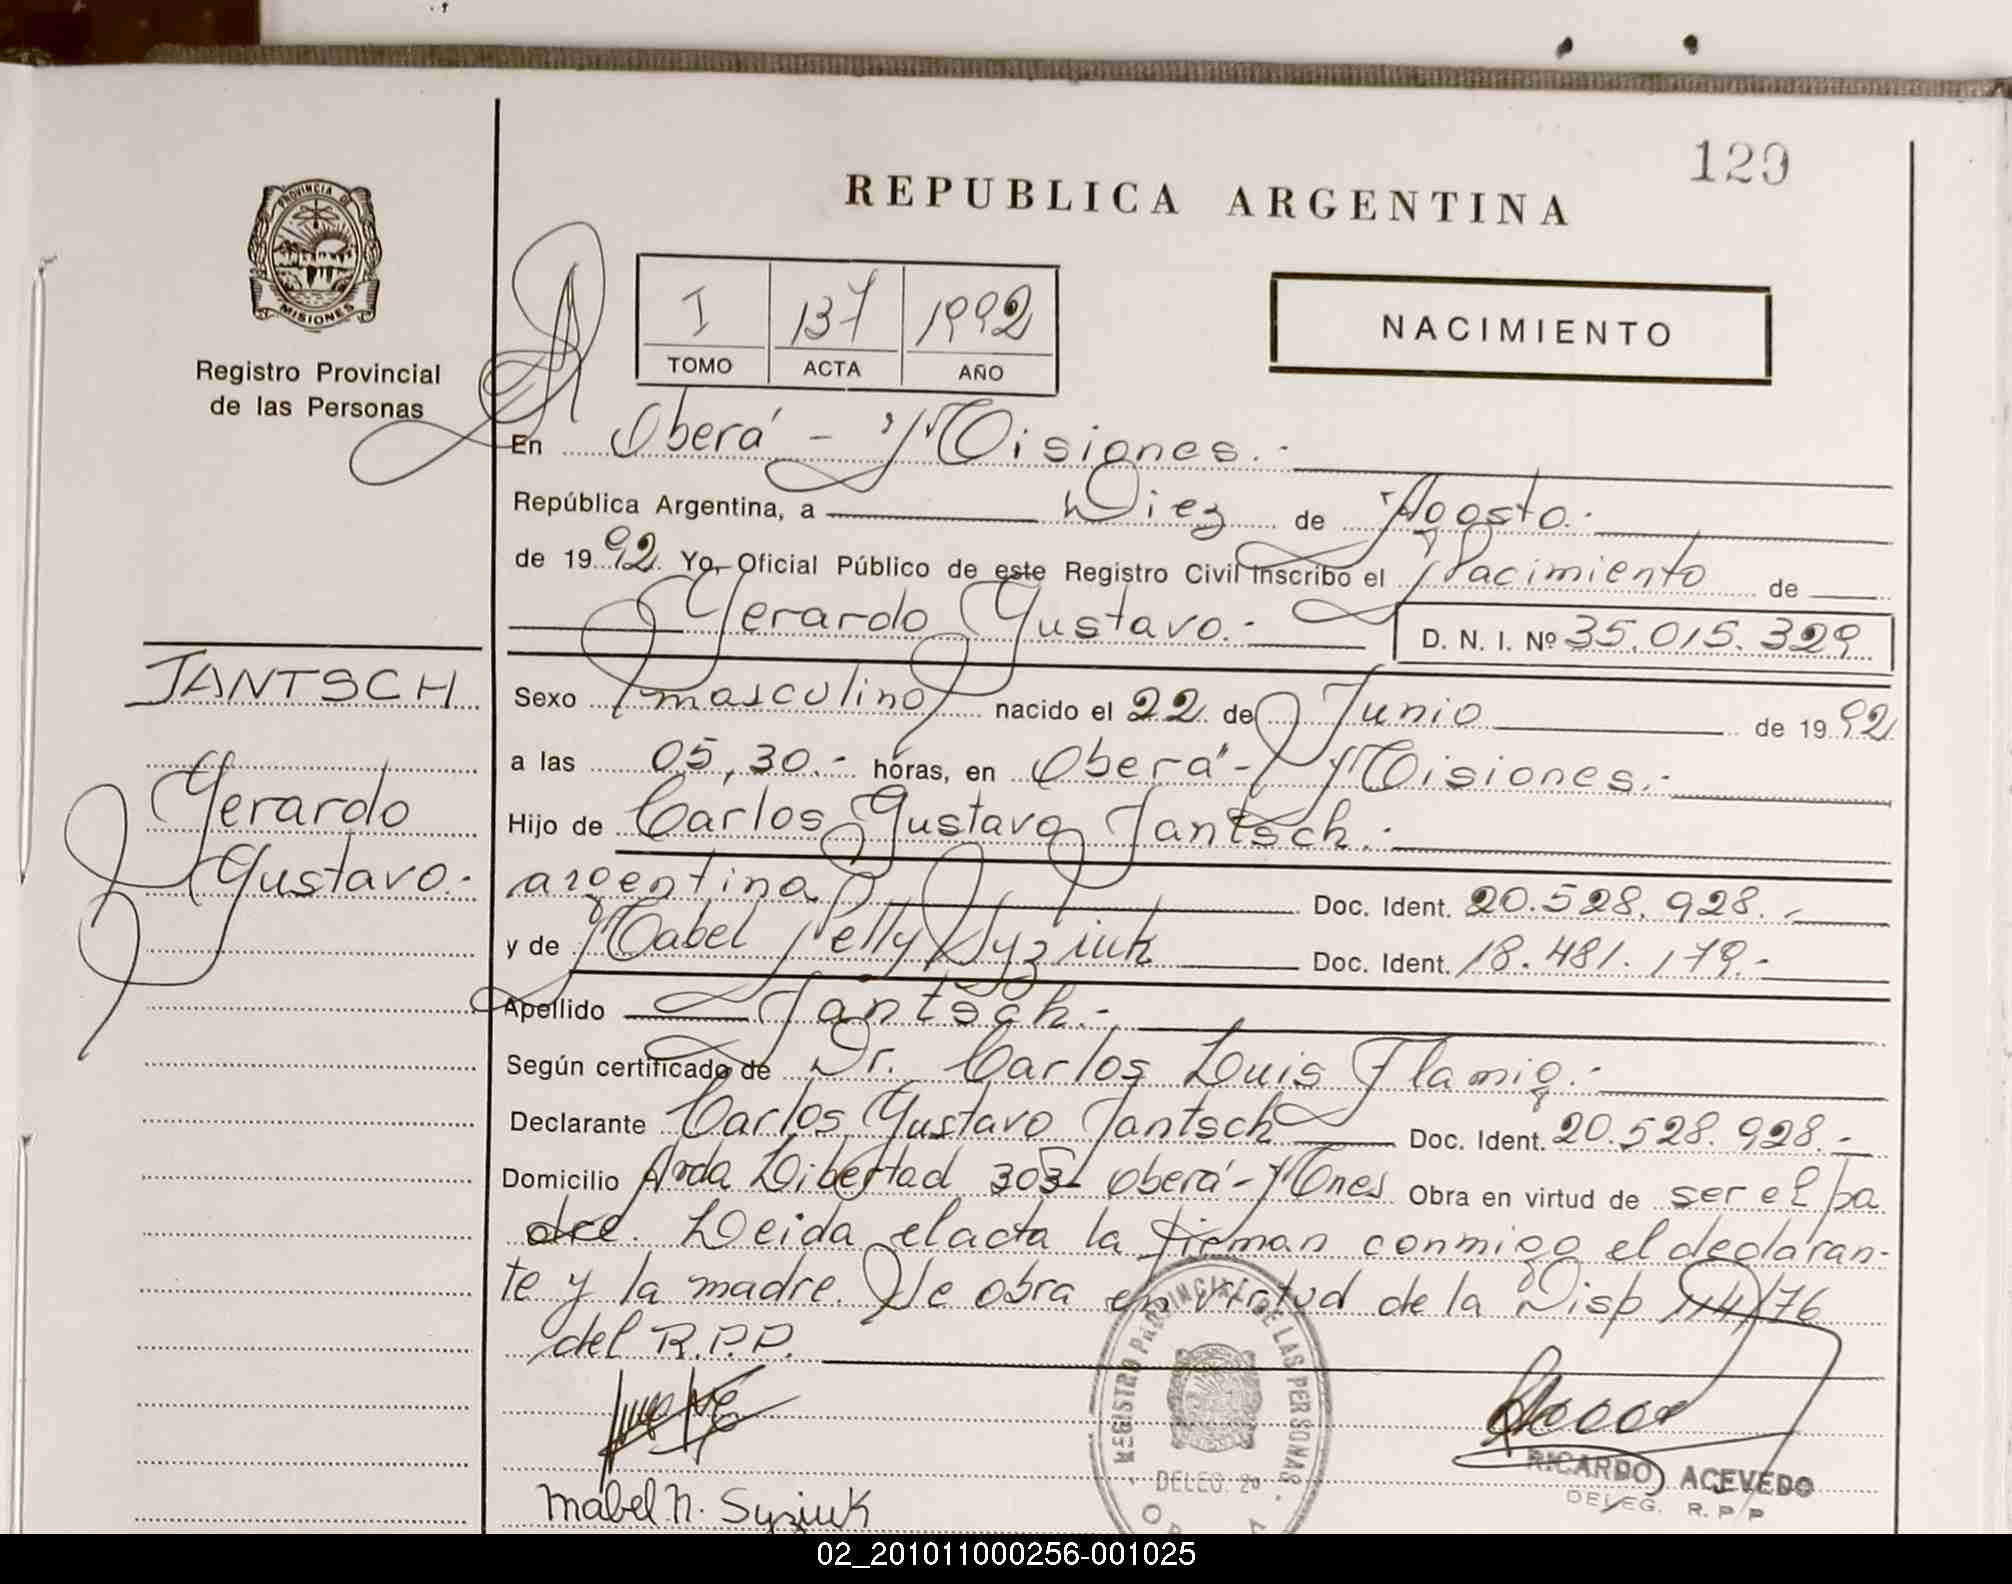 129
REPUBLICA ARGENTINA
PROVINCIA DE
MISIONES
Registro Provincial
de las Personas
I 137 1992
TOMO ACTA AÑO
NACIMIENTO
En Oberá - Misiones.-
República Argentina, a Diez de Agosto.-
de 1992. Yo, Oficial Público de este Registro Civil inscribo el Nacimiento de
Gerardo Gustavo.- D. N. I. Nº 35.015.329
JANTSCH
Gerardo
Gustavo.-
Sexo masculino nacido el 22 de Junio de 1992
a las 05,30.- horas, en Oberá - Misiones.-
Hijo de Carlos Gustavo Jantsch.-
argentina Doc. Ident. 20.528.928.-
y de Mabel Nelly Syziuk Doc. Ident. 18.481.179.-
Apellido Jantsch.-
Según certificado de Dr. Carlos Luis Flamig.-
Declarante Carlos Gustavo Jantsch Doc. Ident. 20.528.928.-
Domicilio Avda Libertad 303 Oberá - Mnes Obra en virtud de ser el pa
dre. Leida el acta la firman conmigo el declaran-
te y la madre. Se obra en virtud de la Disp 114/76
del R.P.P.
REGISTRO PROVINCIAL DE LAS PERSONAS
DELEG. 2º
RICARDO ACEVEDO
DELEG. R. P P
Mabel N. Syziuk
02_201011000256-001025